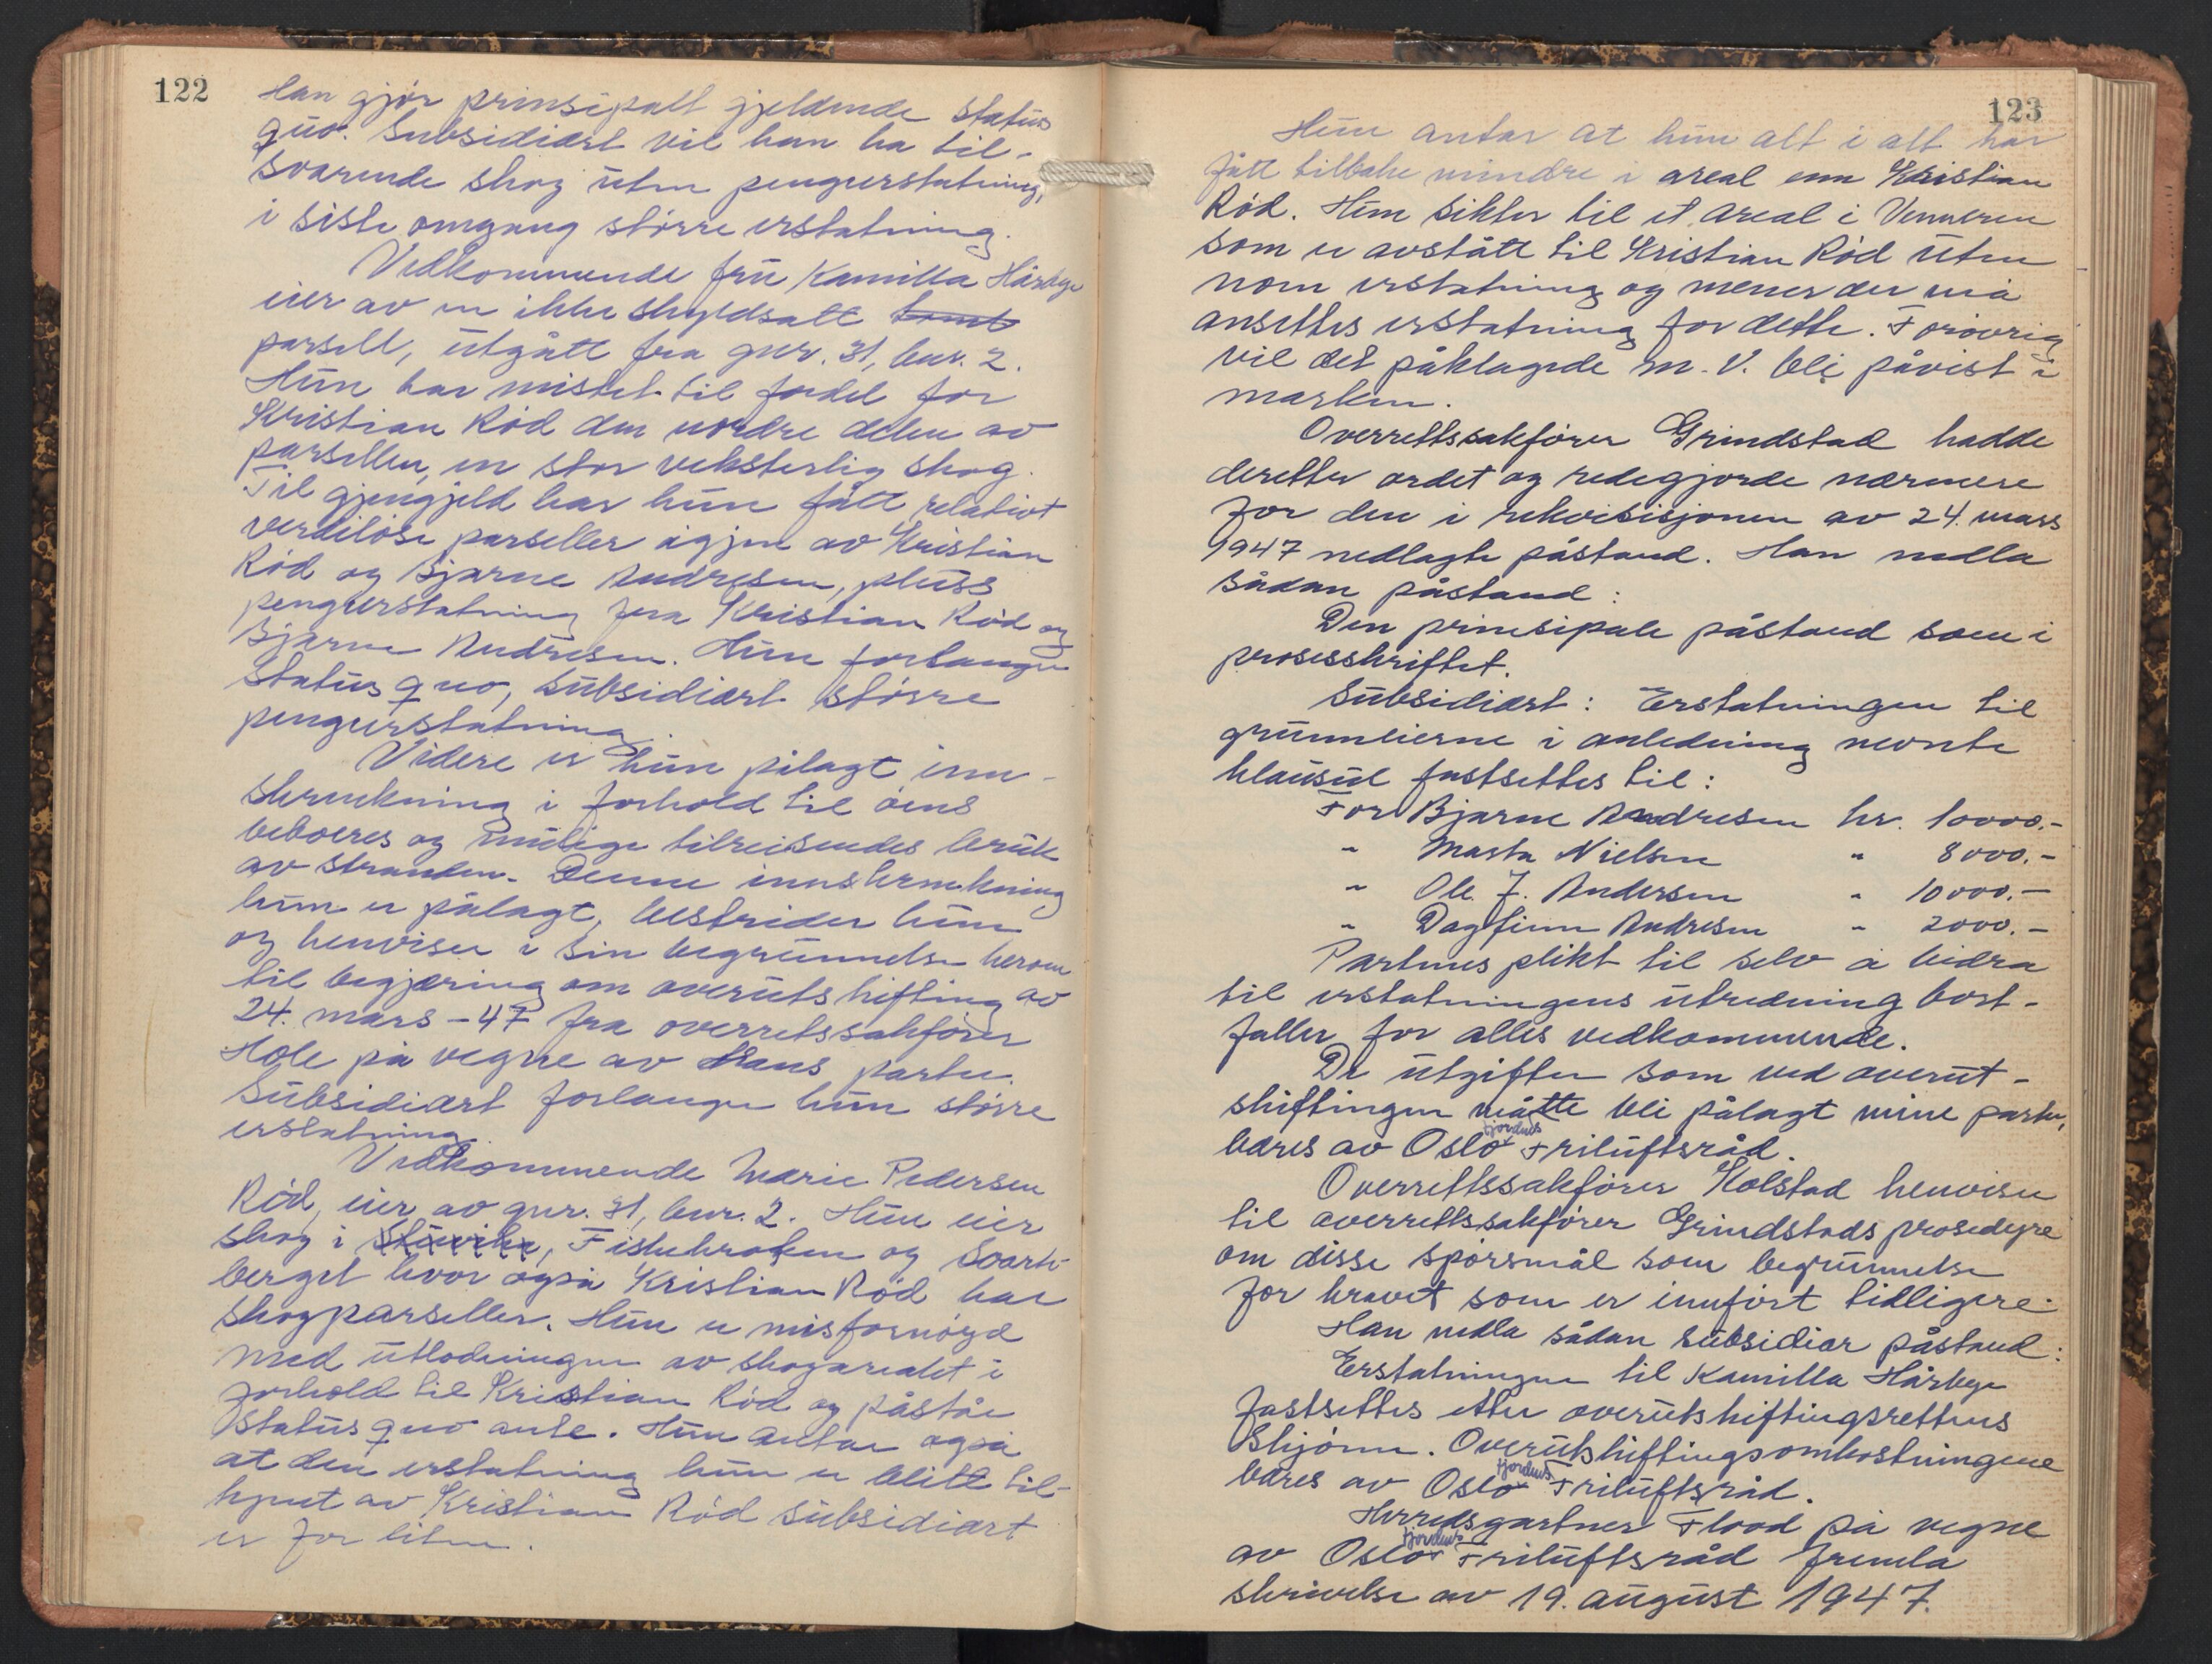 122
Han gjør prinsipalt gjeldende status
quo. Subsidiært vil han ha til-
svarende skog uten pengeerstatning,
i siste omgang større erstatning.
Vedkommende fru Kamilla Hårbye
eier av en ikke skyldsatt tomt
parsell, utgått fra gnr. 31, bnr. 2.
Hun har mistet til fordel for
Kristian Rød den nordre delen av
parsellen, en stor veksterlig skog.
Til gjengjeld har hun fått relativt
verdiløse parseller igjen av Kristian
Rød og Bjarne Andresen, pluss
pengeerstatning fra Kristian Rød og
Bjarne Andresen. Hun forlanger
status quo, subsidiært større
pengeerstatning.
Videre er hun pålagt inn-
skrenkning i forhold til øens
beboeres og mulige tilreisendes bruk
av stranden. Denne innskrenkning
hun er pålagt, bestrider hun
og henviser i sin begrunnelse herom
til begjæring om overutskifting av
24. mars - 47 fra overretssakfører
Hole på vegne av Hans parter.
Subsidiært forlanger hun større
erstatning.
Vedkommende Marie Pedersen
Rød, eier av gnr. 31, bnr. 2. Hun eier
skog i Fiskekroken og Svart-
berget hvor også Kristian Rød har
skogparseller. Hun er misfornøyd
med utlodningen av skogarealet i
forhold til Kristian Rød og påstår
status quo ante. Hun antar også
at den erstatning hun er blitt til-
kjent av Kristian Rød subsidiært
er for liten.
123
Hun antar at hun alt i alt har
fått tilbake mindre i areal enn Kristian
Rød. Hun sikter til et areal i Venneren
som er avstått til Kristian Rød uten
noen erstatning og mener der må
ansettes erstatning for dette. Forøvrig
vil det påklagede m. V. bli påvist i
marken.
Overrettssakfører Grindstad hadde
deretter ordet og redegjorde nærmere
for den i rekvisisjonen av 24. mars
1947 nedlagte påstand. Han nedla
sådan påstand:
Den prinsipale påstand som i
prosesskriftet.
Subsidiært: Erstatningen til
grunneierne i anledning nevnte
klausul fastsettes til:
For Bjarne Andresen kr. 10000.-
" Marta Nielsen " 8000.-
" Ole J. Andersen " 10000.-
" Dagfinn Andresen " 2000.-
Partenes plikt til selv å bidra
til erstatningens utredning bort-
faller for alles vedkommende.
De utgifter som ved overut-
skiftingen måtte bli pålagt mine parter,
bæres av Oslofjordens Friluftsråd.
Overrettssakfører Kolstad henviser
til overrettssakfører Grindstads prosedyre
om disse spørsmål som begrunnelse
for kravet som er innført tidligere.
Han nedla sådan subsidiær påstand:
Erstatningen til Kamilla Hårbye
fastsettes etter overutskiftingsrettens
skjønn. Overutskiftingsomkostningene
bæres av Oslofjordens Friluftsråd.
Herredsgartner Flood på vegne
av Oslofjordens Friluftsråd fremla
skrivelse av 19. august 1947.